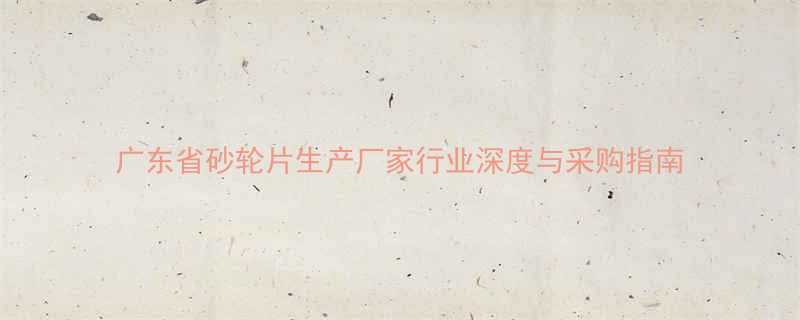 广东省砂轮片生产厂家行业深度与采购指南